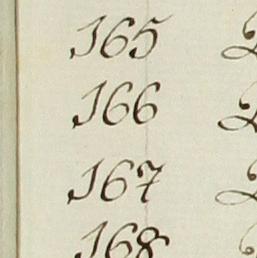 165
166
167
168